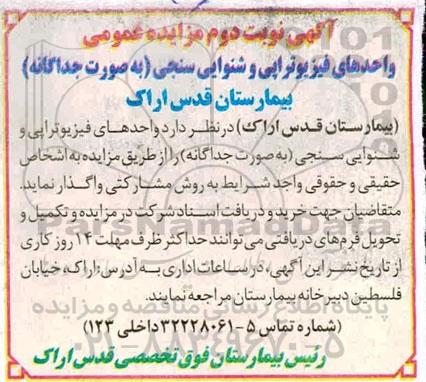 آگهی نوبت دوم مزایده عمومی
واحدهای فیزیوتراپی و شنوایی سنجی (به صورت جداگانه)
بیمارستان قدس اراک
(بیمارستان قدس اراک) در نظر دارد واحدهای فیزیوتراپی و
شنوایی سنجی (به صورت جداگانه) را از طریق مزایده به اشخاص
حقیقی و حقوقی واجد شرایط به روش مشارکتی واگذار نماید.
متقاضیان جهت خرید و دریافت اسناد شرکت در مزایده و تکمیل و
تحویل فرم‌های دریافتی می توانند حداکثر ظرف مهلت ۱۴ روز کاری
از تاریخ نشر این آگهی، در ساعات اداری به آدرس: اراک، خیابان
فلسطین دبیرخانه بیمارستان مراجعه نمایند.
پایگاه اطلاع رسانی مناقصه و مزایده
(شماره تماس ۵-۳۲۲۲۸۰۶۱ داخلی ۱۲۳)
رئیس بیمارستان فوق تخصصی قدس اراک
ParsNamadData